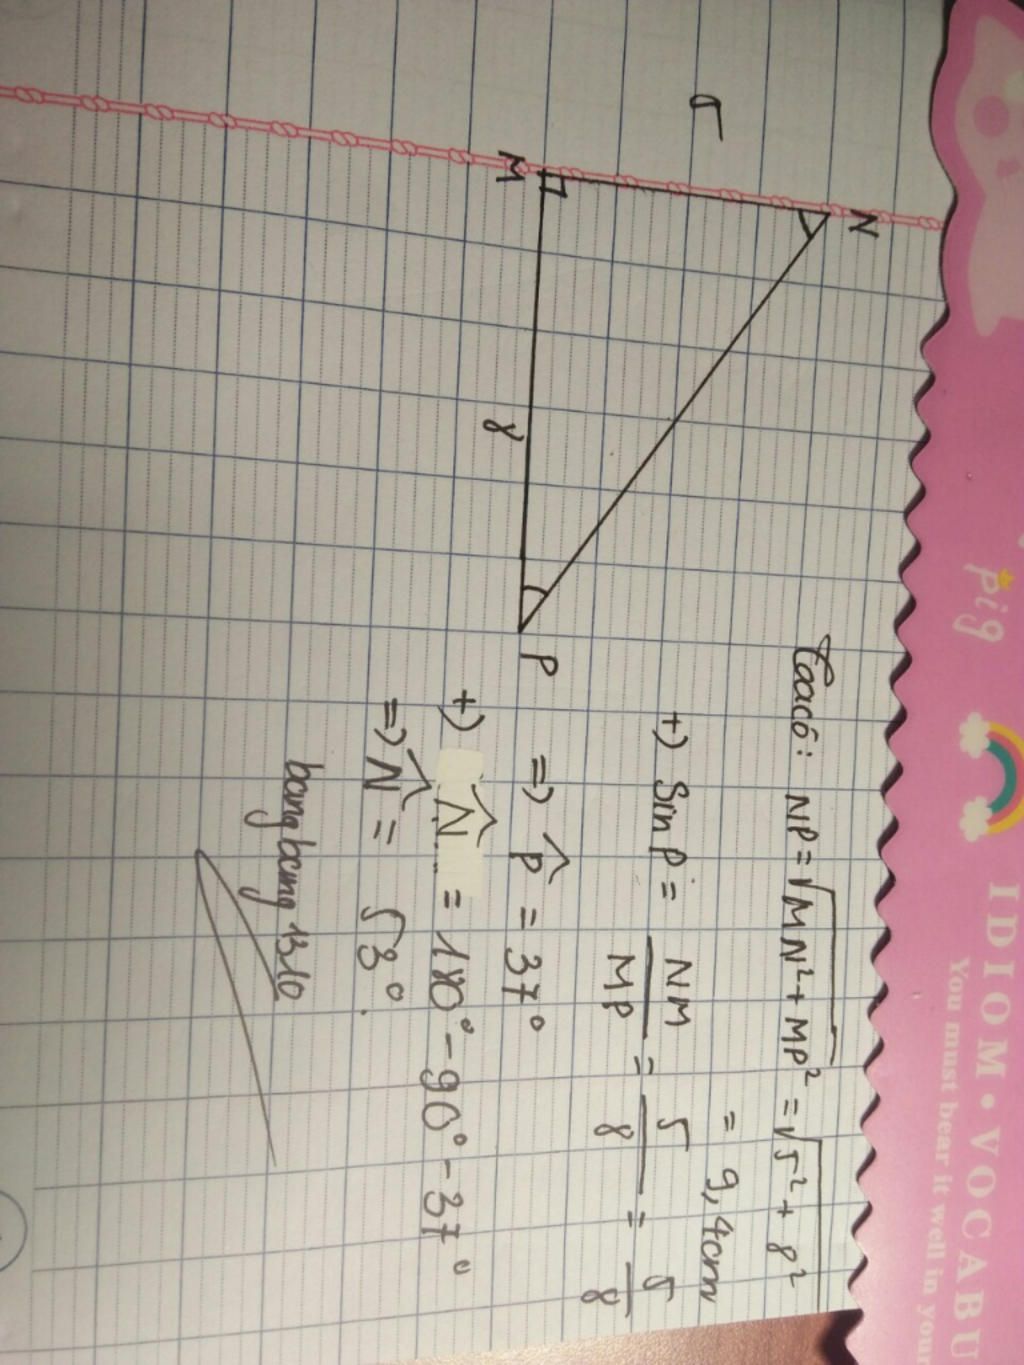 pig
IDIOM • VOCABU
You must bear it well in your
5
N
M
8
P
Ta có: NP = √MN² + MP² = √5² + 8²
= 9,4cm
+) Sin P = NM/MP = 5/8 = 5/8
=> P̂ = 37°
+) N̂ = 180° - 90° - 37°
=> N̂ = 53°.
bangbang1310